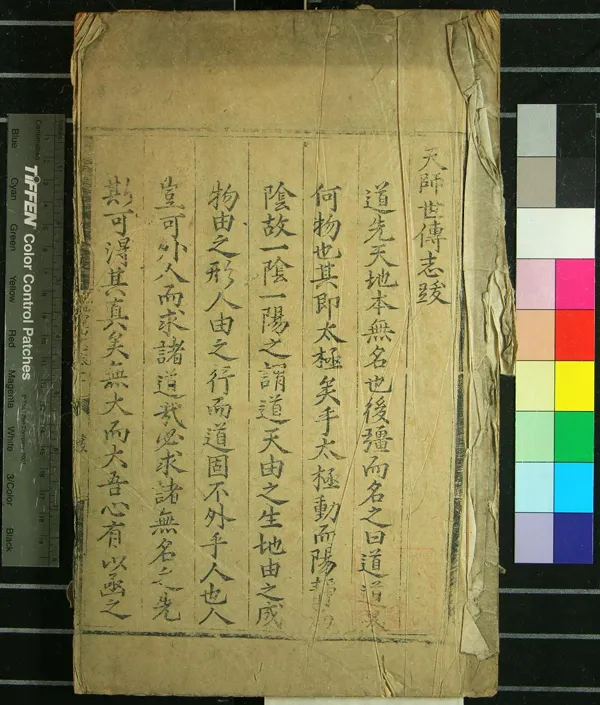 天師世傳志跋
道先天地本無名也後彊而名之曰道道
何物也其即太極矣乎太極動而陽靜
陰故一陰一陽之謂道天由之生地由之成
物由之形人由之行而道固不外乎人也人
豈可外人而求諸道哉必求諸無名之先
斯可得其真矣無大而大吾心有以函之
TIFFEN Color Control Patches
Blue
Cyan
Green
Yellow
Red
Magenta
White
3/Color
Black